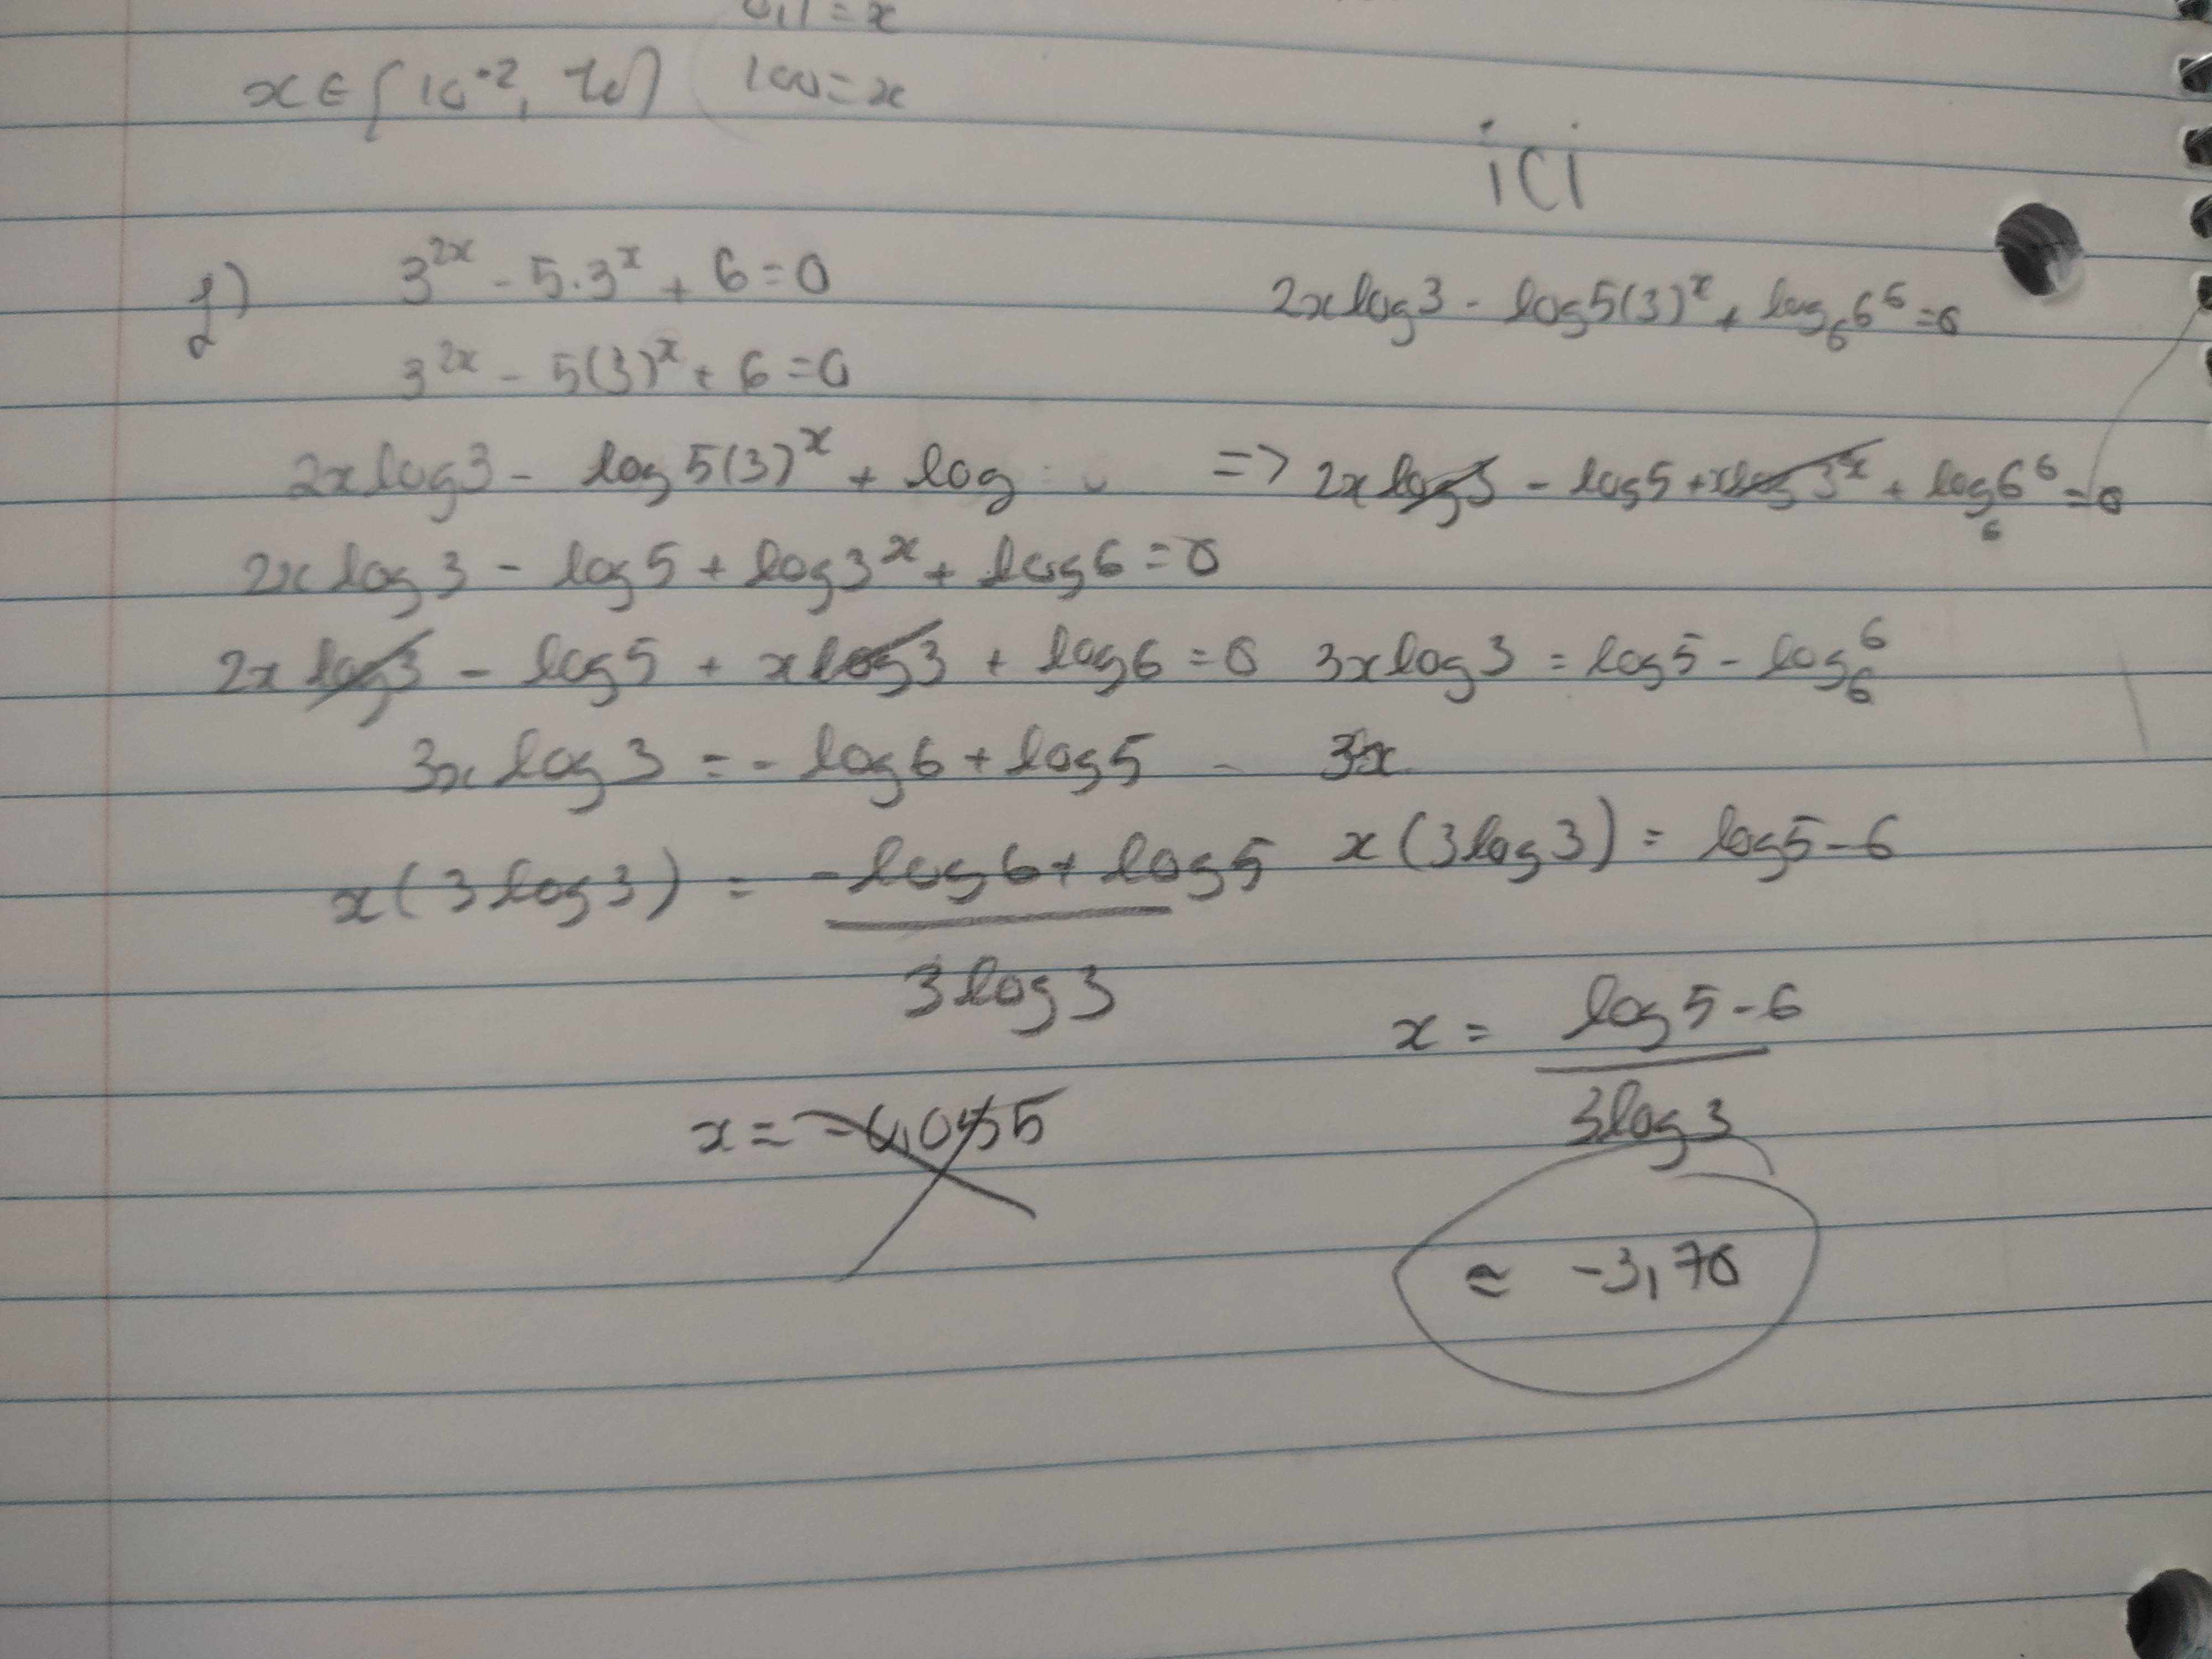 = x
x ∈ [10^-2, 100 = x
ici
f) 3^2x - 5.3^x + 6 = 0
3^2x - 5(3)^x + 6 = 0
2x log 3 - log 5(3)^x + log
2x log 3 - log 5 + log 3^x + log 6 = 0
2x log 3 - log 5 + x log 3 + log 6 = 0
3x log 3 = - log 6 + log 5
x(3 log 3) = - log 6 + log 5
3 log 3
x =
2x log 3 - log 5(3)^x + log_6 6^6 = 0
=> 2x log 3 - log 5 + x log 3^x + log_6 6^6 = 0
3x log 3 = log 5 - log_6 6
3x
x (3 log 3) = log 5 - 6
x = log 5 - 6
3 log 3
≈ -3,70